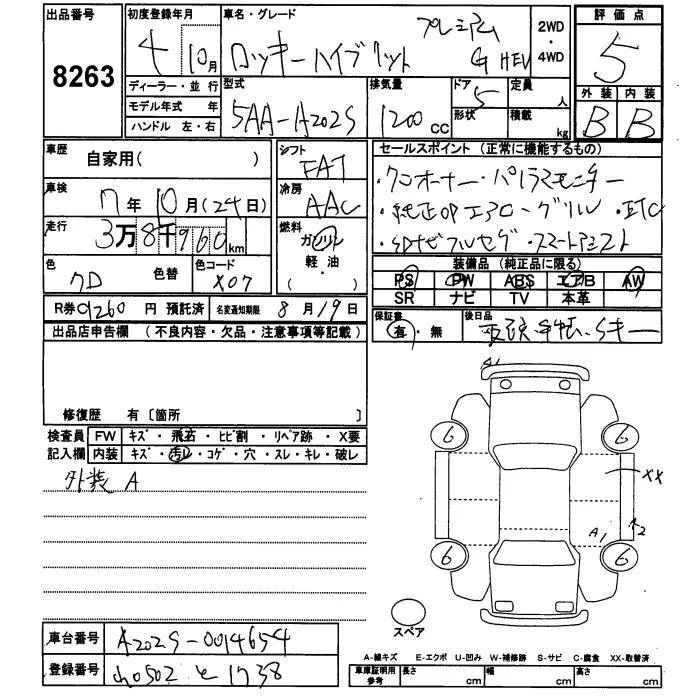 出品番号
8263
初度登録年月
4 10月
車名・グレード
ロッキーハイブリット プレミアム G HEV
2WD
・
4WD
評価点
5
外装 内装
B B
ディーラー・並行
モデル年式 年
ハンドル 左・右
型式
5AA-A202S
排気量
1200 CC
ドア 5
形状
定員 人
積載 kg
車歴
自家用( )
車検
7年10月(24日)
走行
3万8千960km
色
色替
色コード
X07
シフト
FAT
冷房
AAC
燃料
ガソリン
軽・油
( )
セールスポイント (正常に機能するもの)
・ワンオーナー・パノラマモニター
・純正OPエアロ・グリル・ETC
・SDナビフルセグ・スマートアシスト
装備品 (純正品に限る)
PS PW ABS エアB AW
SR ナビ TV 本革
R券 9260 円 預託済 名変通知期限 8月19日
保証書
有・無
後日品
出品店申告欄 (不良内容・欠品・注意事項等記載)
修復歴 有〔箇所
検査員
記入欄
FW キズ・飛石・ヒビ割・リペア跡・X要
内装 キズ・汚レ・コゲ・穴・スレ・キレ・破レ
外装 A
A1
6 6
XX
A1
2
6 6
スペア
車台番号 A202S-0014654
登録番号
A-線キズ E-エクボ U-凹み W-補修跡 S-サビ C-腐食 XX-取替済
車庫証明用
参考
長さ cm 幅 cm 高さ cm